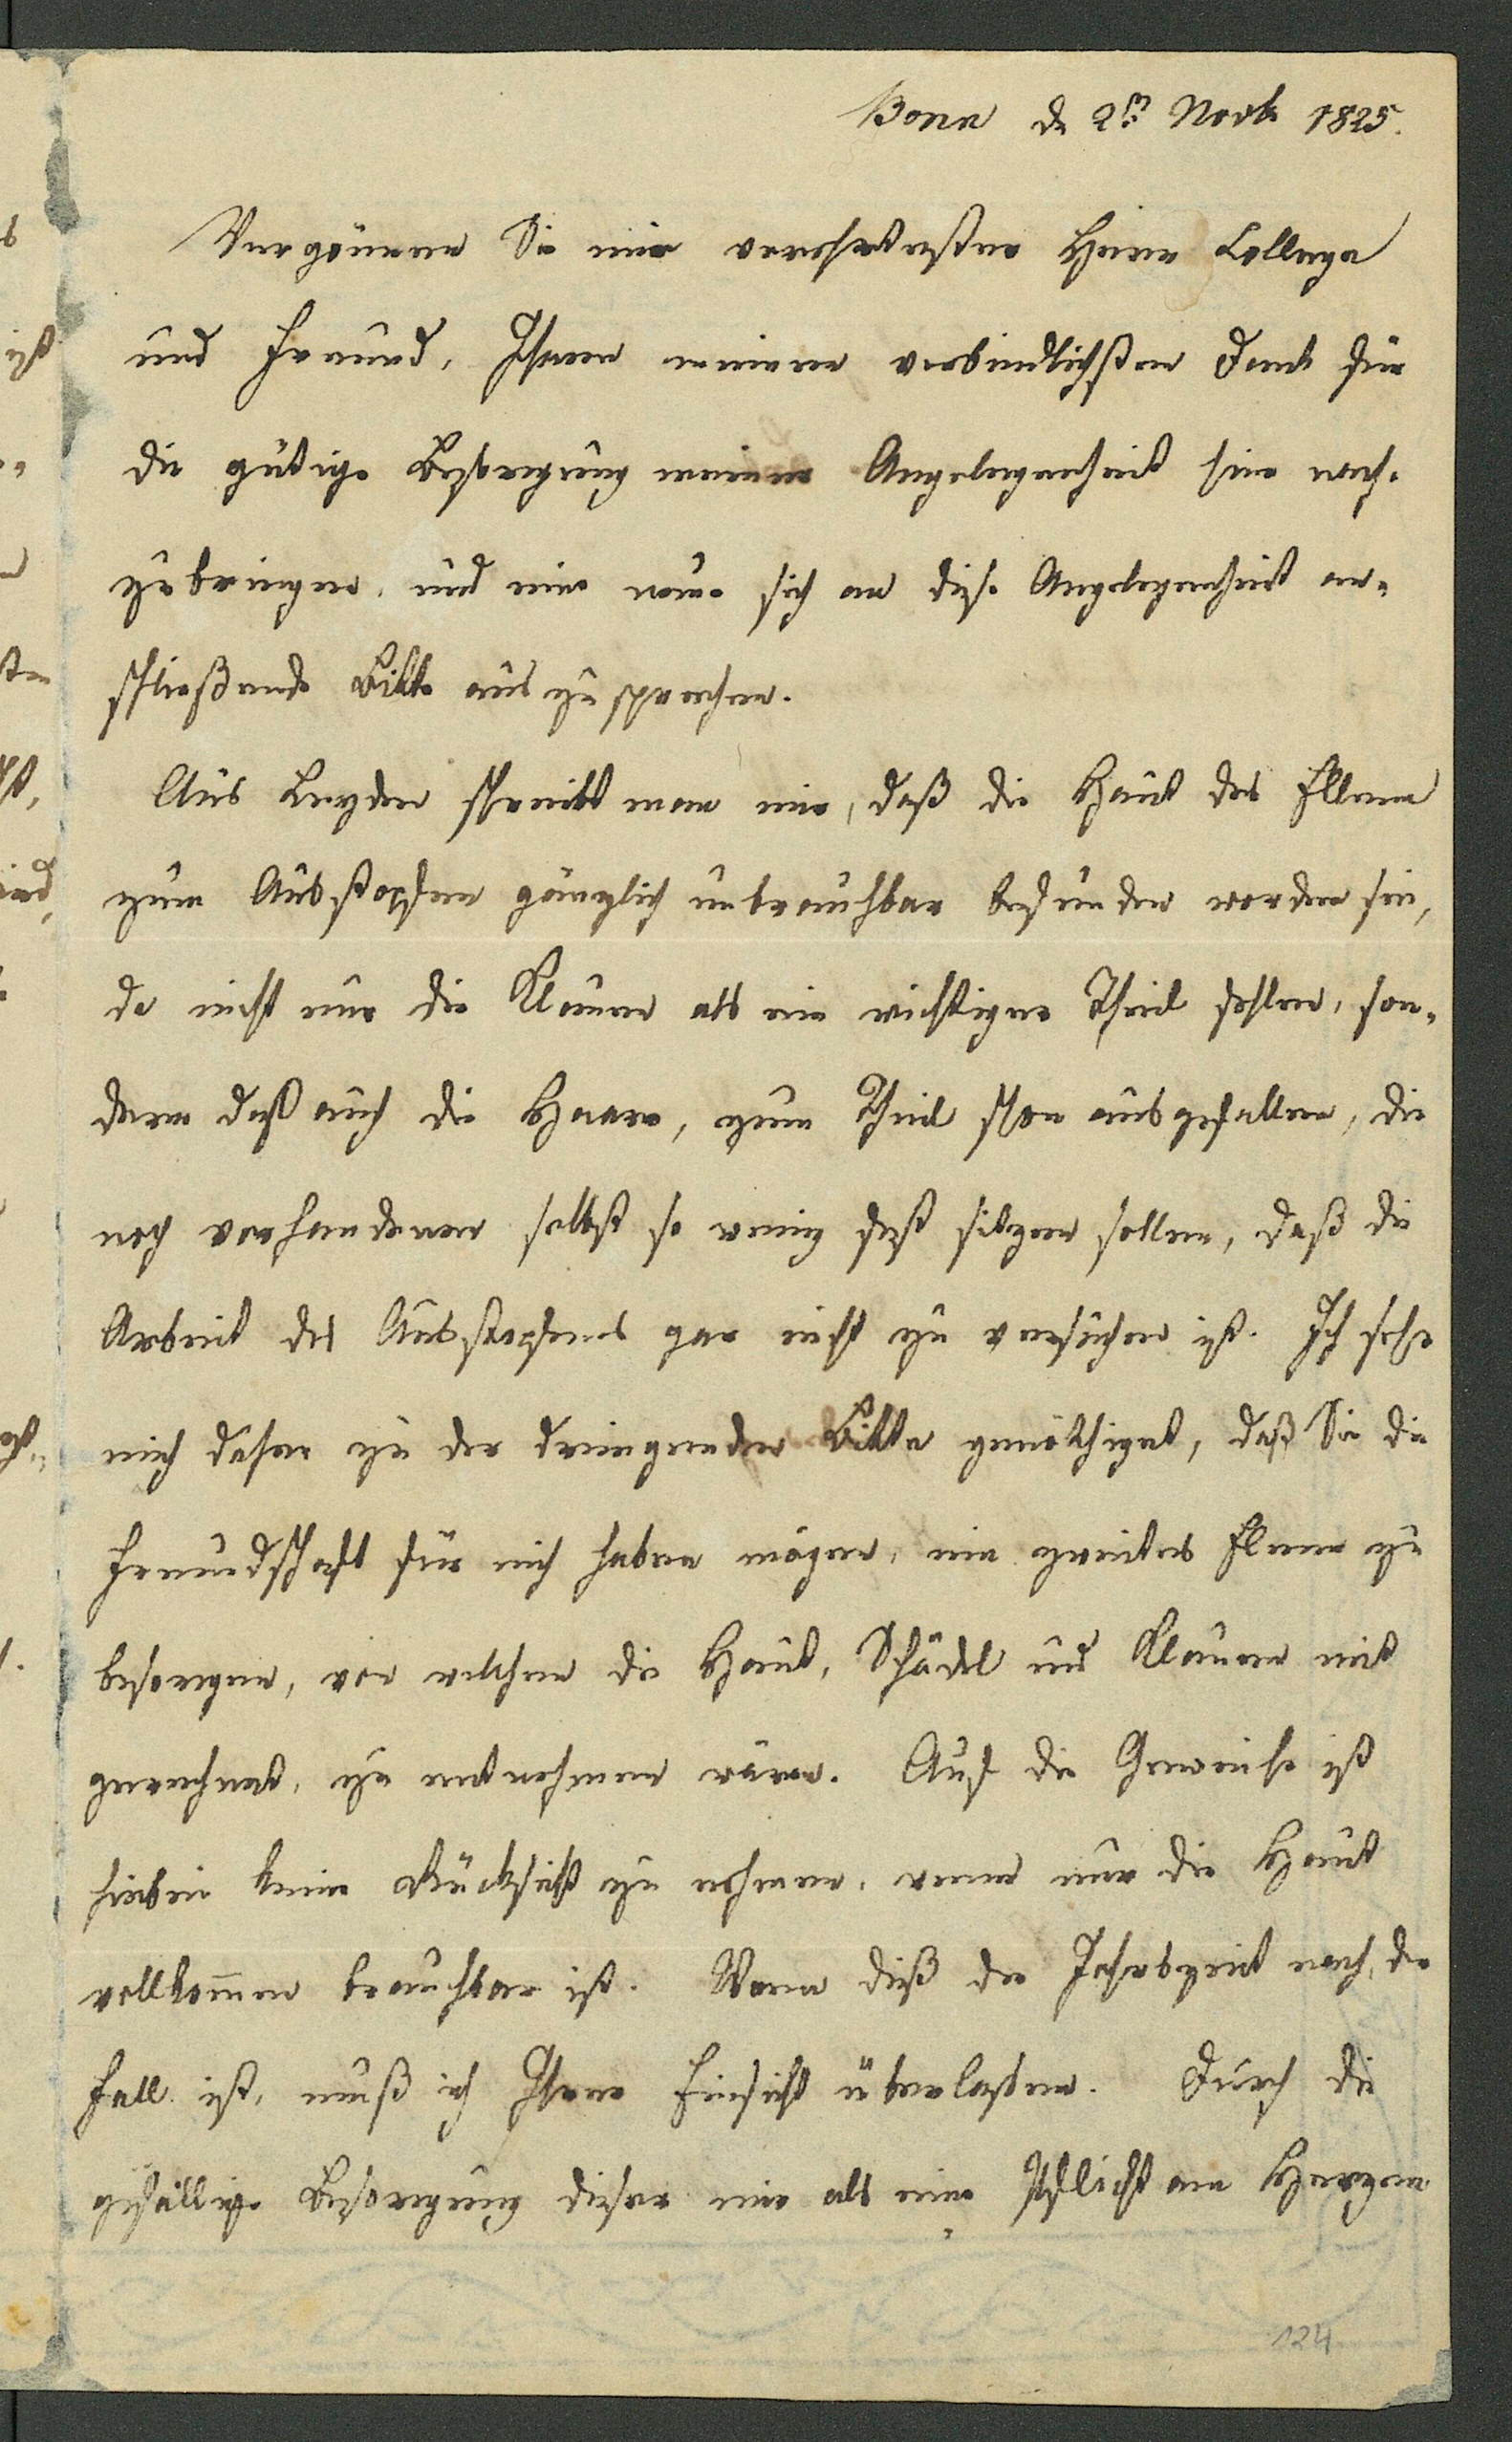 Bonn d. 2n Novb 1825.
Vergönnen Sie mir verehrtester Herr College
und Freund, Ihnen meinen verbindlichsten Dank für
die gütige Besorgung meiner Angelegenheit hier nach-
zubringen, und eine neue sich an diese Angelegenheit an-
schließende Bitte auszusprechen.
Aus Leyden schreibt man mir, daß die Haut des Ellenn
zum Ausstopfen gänzlich unbrauchbar befunden worden sei,
da nicht nur die Klauen als ein wichtiger Theil fehlen, son-
dern daß auch die Haare, zum Theil schon ausgefallen, die
noch vorhandenen selbst so wenig fest sitzen sollen, daß die
Arbeit des Ausstopfens gar nicht zu versuchen ist. Ich sehe
mich daher zu der dringenden Bitte genöthiget, daß Sie die
Freundschaft für mich haben mögen, ein zweites Elenn zu
besorgen, von welchem die Haut, Schädel und Klauen mit
gerechnet, zu entnehmen wären. Auf die Geweihe ist
hiebei keine Rücksicht zu nehmen, wenn nur die Haut
vollkommen brauchbar ist. Wann dieß der Jahrszeit nach, der
Fall ist, muß ich Ihrer Einsicht überlassen. Durch die
gefällige Besorgung dieser mir als eine Pflicht am Herzen
124